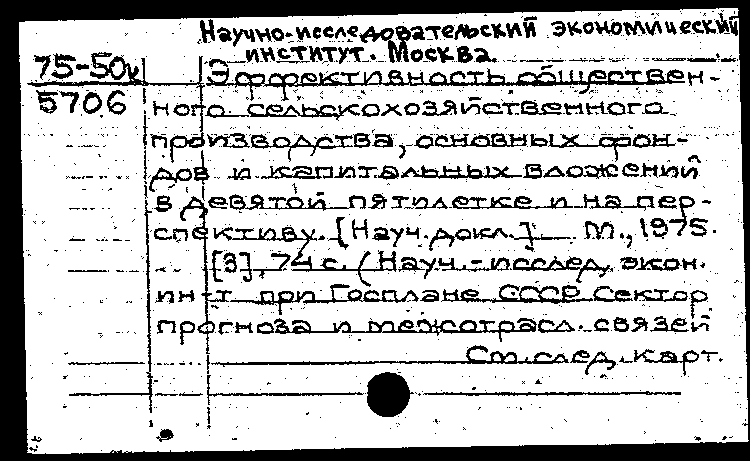 Научно-исследовательский экономический
институт. Москва.
75-50к
5706
Эффективность обществен-
ного сельскохозяйственного
производства, основных фон-
дов и капитальных вложений
в девятой пятилетке и на пер-
спективу. [Науч. докл.] М., 1975.
[3], 74 с. (Науч.-исслед. экон.
ин-т при Госплане СССР Сектор
прогноза и межотрасл. связей
См. след. карт.